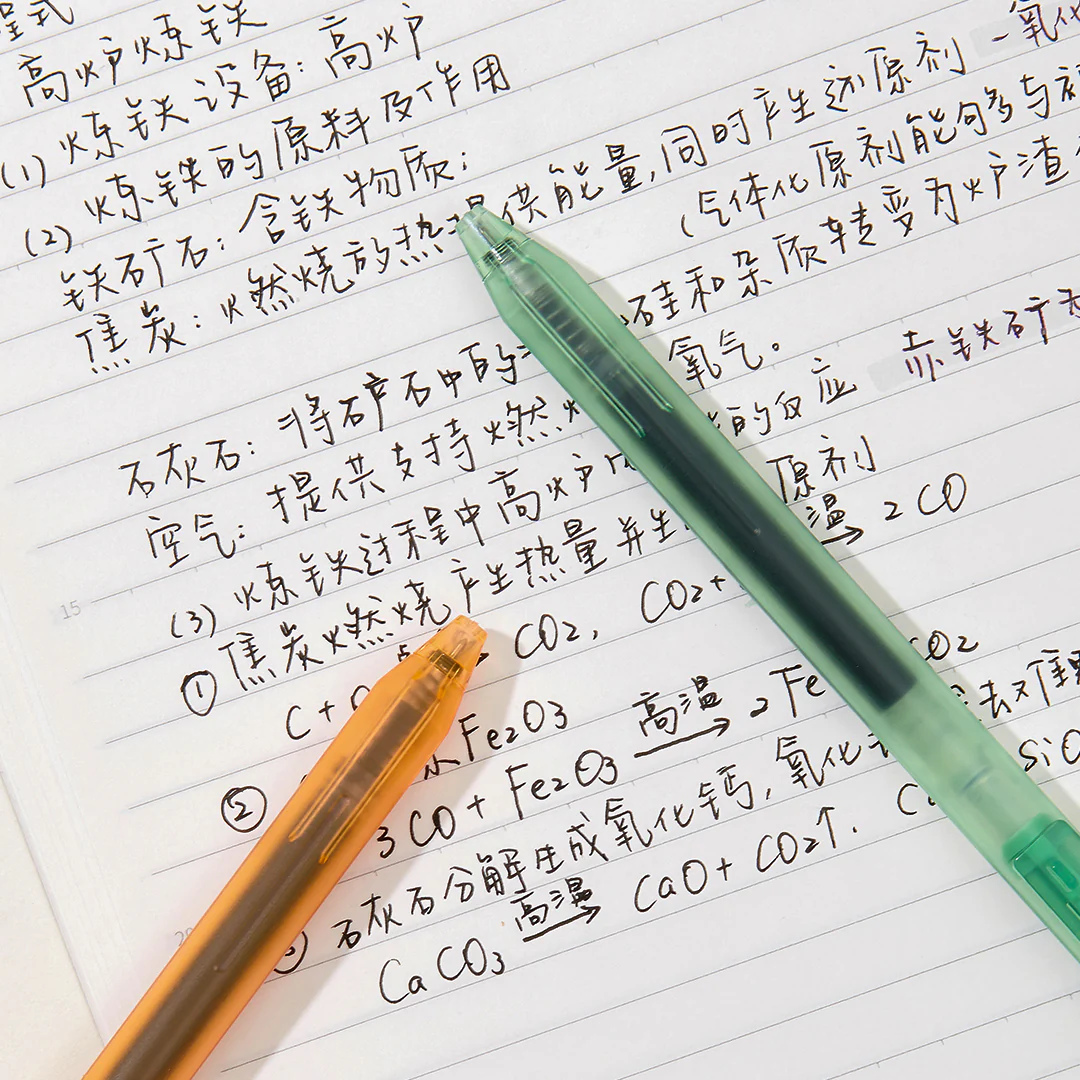 程式
高炉炼铁
(1) 炼铁设备：高炉
(2) 炼铁的原料及作用
铁矿石：含铁物质；
焦炭：燃烧放热提供能量，同时产生还原剂 一氧化
(气体化原剂能够与初
石灰石：将矿石中的 硅和杂质转变为炉渣
空气：提供支持燃 氧气。
(3) 炼铁过程中高炉 的反应 赤铁矿为
① 焦炭燃烧产生热量并生 原剂
C+O CO2, CO2+ 高温→ 2CO
② Fe2O3
3CO + Fe2O3 高温→ 2Fe CO2
石灰石分解生成氧化钙，氧化 去
CaCO3 高温→ CaO + CO2↑. Ca SiO
15